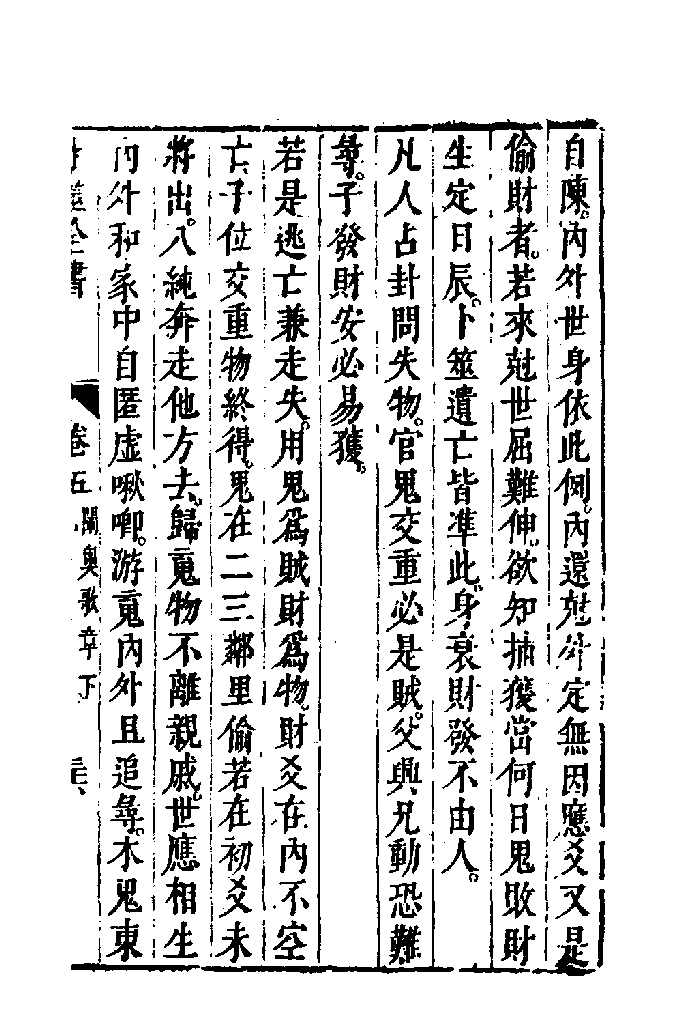 自陳。內外世身依此例。內還尅外定無因。應爻又是
偷財者。若來尅世屈難伸。欲知捕獲當何日。鬼敗財
生定日辰。卜筮遺亡皆凖此。身衰財發不由人。
凡人占卦問失物。官鬼交重必是賊。父興、兄動恐難
尋。子發財安必易獲。
若是逃亡兼走失。用鬼爲賊財爲物。財爻在內不空
亡。子位交重物終得。鬼在二三鄰里偷若在初爻未
將出。八純奔走他方去。歸䰟物不離親戚。世應相生
內外和家中自匿虛啾唧。游䰟內外且追尋。木鬼東
全書 卷五 闡奧歌章下